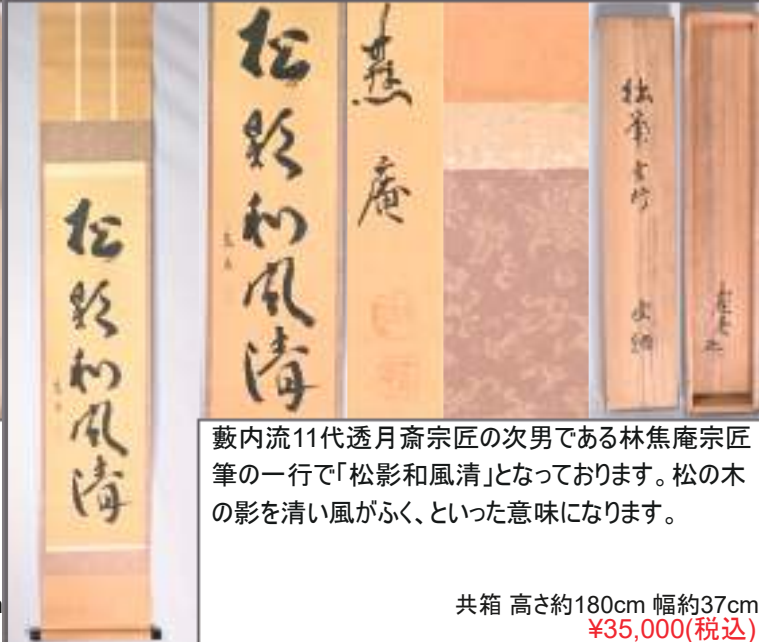 松影和風清
松影和風清
蕉庵
拙筆 一行
藪内流11代透月斎宗匠の次男である林焦庵宗匠
筆の一行で「松影和風清」となっております。松の木
の影を清い風がふく、といった意味になります。
共箱 高さ約180cm 幅約37cm
¥35,000(税込)